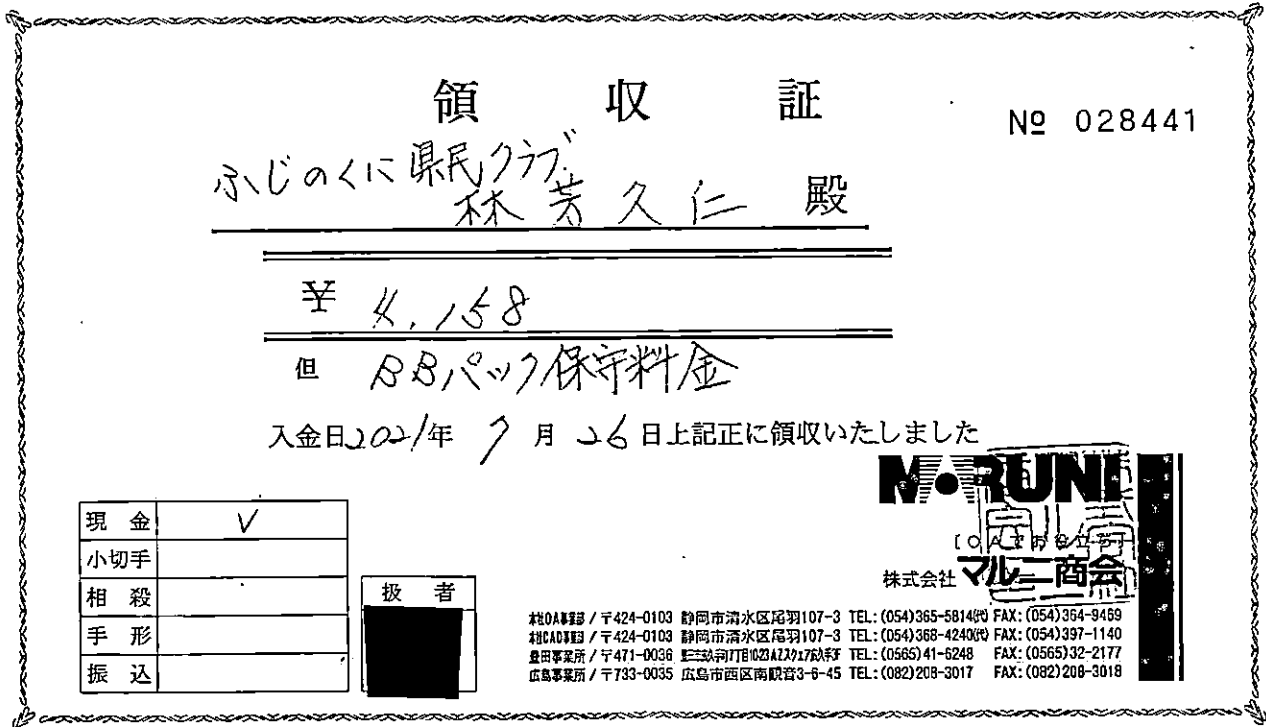 領収証
№ 028441
ふじのくに県民クラブ
林芳久仁 殿
¥ 4,158
但 BBパック保守料金
入金日2021年 7月 26日上記正に領収いたしました
MARUNI
[OAでお役立ち]
株式会社 マルニ商会
現金 V
小切手
相殺
手形
振込
扱者
本社OA事業部 / 〒424-0103 静岡市清水区尾羽107-3 TEL:(054)365-5814(代) FAX:(054)364-9469
本社CAD事業部 / 〒424-0103 静岡市清水区尾羽107-3 TEL:(054)368-4240(代) FAX:(054)397-1140
豊田事業所 / 〒471-0036 TEL:(0565)41-6248 FAX:(0565)32-2177
広島事業所 / 〒733-0035 広島市西区南観音3-6-45 TEL:(082)208-3017 FAX:(082)208-3018